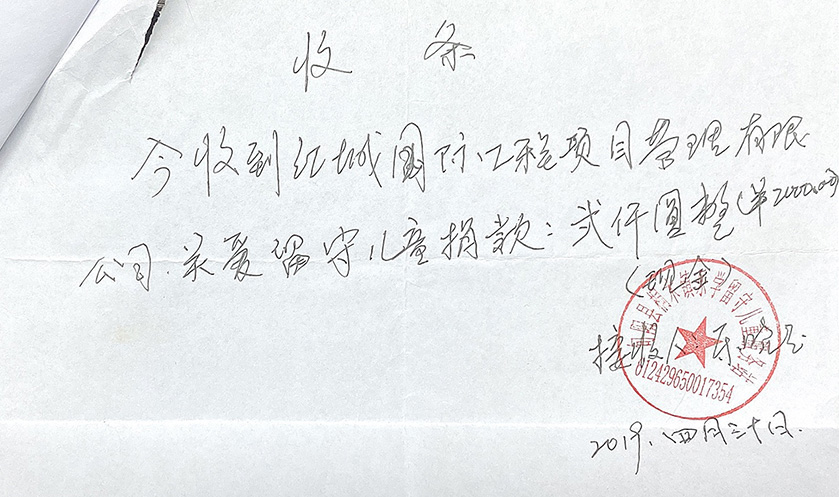 收条
今收到红城国际工程项目管理有限
公司.关爱留守儿童捐款:贰仟圆整(¥2000.00)
(现金)
县 镇 学留守儿童
接收人:
612429650017354
2019.四月三十日.